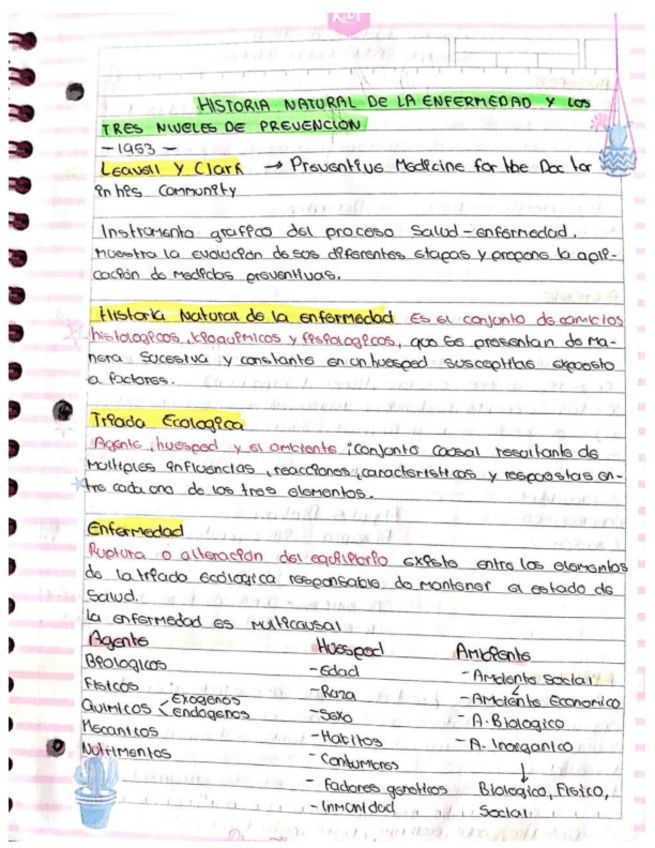 HISTORIA NATURAL DE LA ENFERMEDAD Y LOS
TRES NIVELES DE PREVENCION
-1953-
Leavell y Clark → Preventive Medicine for the Doctor
in his Community
Instrumento grafico del proceso Salud-enfermedad.
Muestra la evolución de sus diferentes etapas y propone la apli-
cación de medidas preventivas.
Historia Natural de la enfermedad Es el conjunto de cambios
histologicos, bioquimicos y fisiologicos, que se presentan de ma-
nera sucesiva y constante en un huesped susceptible expuesto
a factores.
Triada Ecologica
Agente, huesped y el ambiente; conjunto causal resultante de
multiples influencias, reacciones, caracteristicas y respuestas en-
tre cada uno de los tres elementos.
Enfermedad
Ruptura o alteración del equilibrio existe entre los elementos
de la triada ecologica responsable de mantener el estado de
Salud.
la enfermedad es multicausal
Agente Huesped Ambiente
Biologicos -Edad -Ambiente Social
Fisicos -Raza -Ambiente Economico
Quimicos < Exogenos endogenos -Sexo -A. Biologico
Mecanicos -Habitos -A. Inorganico
Nutrimentos -Costumbres ↓
- Factores geneticos Biologico, Fisico,
-Inmunidad Social